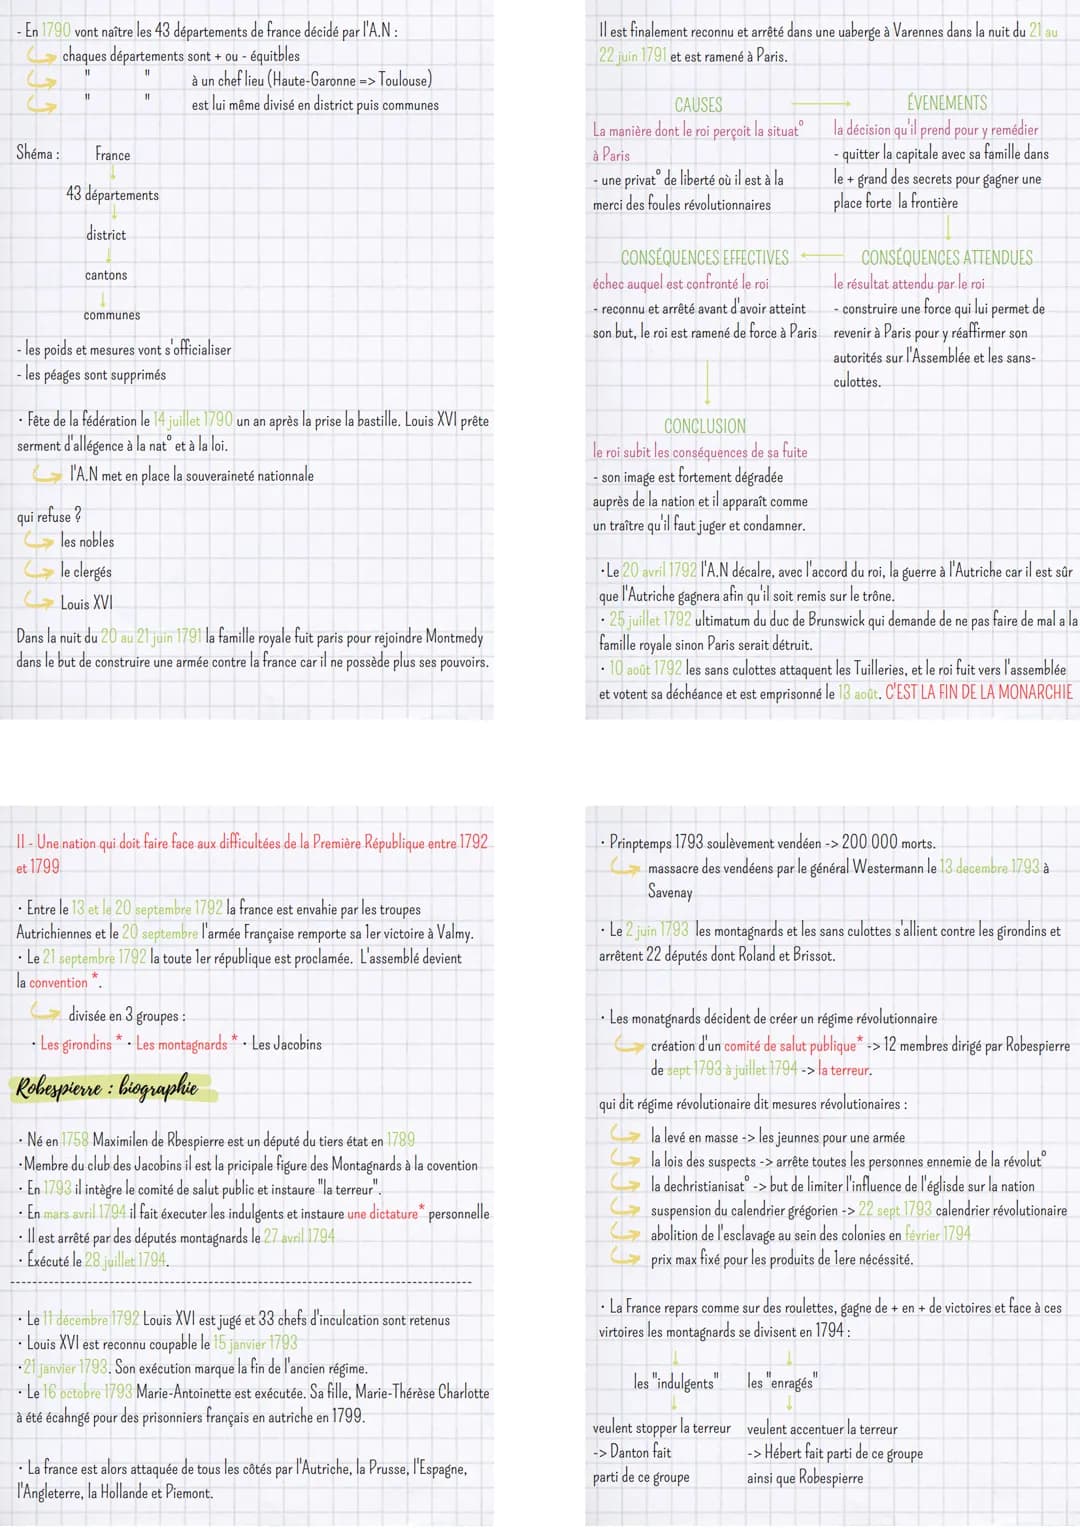 - En 1790 vont naître les 43 départements de france décidé par l'A.N :
chaques départements sont + ou - équitbles
" " à un chef lieu (Haute-Garonne => Toulouse)
" " est lui même divisé en district puis communes
Shéma : France
43 départements
district
cantons
communes
- les poids et mesures vont s'officialiser
- les péages sont supprimés
· Fête de la fédération le 14 juillet 1790 un an après la prise la bastille. Louis XVI prête
serment d'allégence à la nat° et à la loi.
l'A.N met en place la souveraineté nationnale
qui refuse ?
les nobles
le clergés
Louis XVI
Dans la nuit du 20 au 21 juin 1791 la famille royale fuit paris pour rejoindre Montmedy
dans le but de construire une armée contre la france car il ne possède plus ses pouvoirs.
Il est finalement reconnu et arrêté dans une uaberge à Varennes dans la nuit du 21 au
22 juin 1791 et est ramené à Paris.
CAUSES
La manière dont le roi perçoit la situat°
à Paris
- une privat° de liberté où il est à la
merci des foules révolutionnaires
ÉVENEMENTS
la décision qu'il prend pour y remédier
- quitter la capitale avec sa famille dans
le + grand des secrets pour gagner une
place forte la frontière
CONSÉQUENCES ATTENDUES
le résultat attendu par le roi
- construire une force qui lui permet de
revenir à Paris pour y réaffirmer son
autorités sur l'Assemblée et les sans-
culottes.
CONSÉQUENCES EFFECTIVES
échec auquel est confronté le roi
- reconnu et arrêté avant d'avoir atteint
son but, le roi est ramené de force à Paris
CONCLUSION
le roi subit les conséquences de sa fuite
- son image est fortement dégradée
auprès de la nation et il apparaît comme
un traître qu'il faut juger et condamner.
·Le 20 avril 1792 l'A.N décalre, avec l'accord du roi, la guerre à l'Autriche car il est sûr
que l'Autriche gagnera afin qu'il soit remis sur le trône.
· 25 juillet 1792 ultimatum du duc de Brunswick qui demande de ne pas faire de mal a la
famille royale sinon Paris serait détruit.
· 10 août 1792 les sans culottes attaquent les Tuilleries, et le roi fuit vers l'assemblée
et votent sa déchéance et est emprisonné le 13 août. C'EST LA FIN DE LA MONARCHIE
II - Une nation qui doit faire face aux difficultées de la Première République entre 1792
et 1799
· Entre le 13 et le 20 septembre 1792 la france est envahie par les troupes
Autrichiennes et le 20 septembre l'armée Française remporte sa 1er victoire à Valmy.
· Le 21 septembre 1792 la toute 1er république est proclamée. L'assemblé devient
la convention *.
divisée en 3 groupes :
· Les girondins * · Les montagnards * · Les Jacobins
Robespierre : biographie
· Né en 1758 Maximilen de Rbespierre est un député du tiers état en 1789
·Membre du club des Jacobins il est la pricipale figure des Montagnards à la covention
· En 1793 il intègre le comité de salut public et instaure "la terreur".
· En mars avril 1794 il fait éxecuter les indulgents et instaure une dictature* personnelle
· Il est arrêté par des députés montagnards le 27 avril 1794
· Éxécuté le 28 juillet 1794.
· Le 11 décembre 1792 Louis XVI est jugé et 33 chefs d'inculcation sont retenus
· Louis XVI est reconnu coupable le 15 janvier 1793
·21 janvier 1793. Son exécution marque la fin de l'ancien régime.
· Le 16 octobre 1793 Marie-Antoinette est exécutée. Sa fille, Marie-Thérèse Charlotte
à été écahngé pour des prisonniers français en autriche en 1799.
· La france est alors attaquée de tous les côtés par l'Autriche, la Prusse, l'Espagne,
l'Angleterre, la Hollande et Piemont.
· Printptemps 1793 soulèvement vendéen -> 200 000 morts.
massacre des vendéens par le général Westermann le 13 decembre 1793 à
Savenay
· Le 2 juin 1793 les montagnards et les sans culottes s'allient contre les girondins et
arrêtent 22 députés dont Roland et Brissot.
· Les monatgnards décident de créer un régime révolutionnaire
création d'un comité de salut publique* -> 12 membres dirigé par Robespierre
de sept 1793 à juillet 1794 -> la terreur.
qui dit régime révolutionaire dit mesures révolutionaires :
la levé en masse -> les jeunnes pour une armée
la lois des suspects -> arrête toutes les personnes ennemie de la révolut°
la dechristianisat° -> but de limiter l'influence de l'églisde sur la nation
suspension du calendrier grégorien -> 22 sept 1793 calendrier révolutionaire
abolition de l'esclavage au sein des colonies en février 1794
prix max fixé pour les produits de 1ere nécéssité.
· La France repars comme sur des roulettes, gagne de + en + de victoires et face à ces
virtoires les montagnards se divisent en 1794 :
les "indulgents" les "enragés"
veulent stopper la terreur
-> Danton fait
parti de ce groupe
veulent accentuer la terreur
-> Hébert fait parti de ce groupe
ainsi que Robespierre